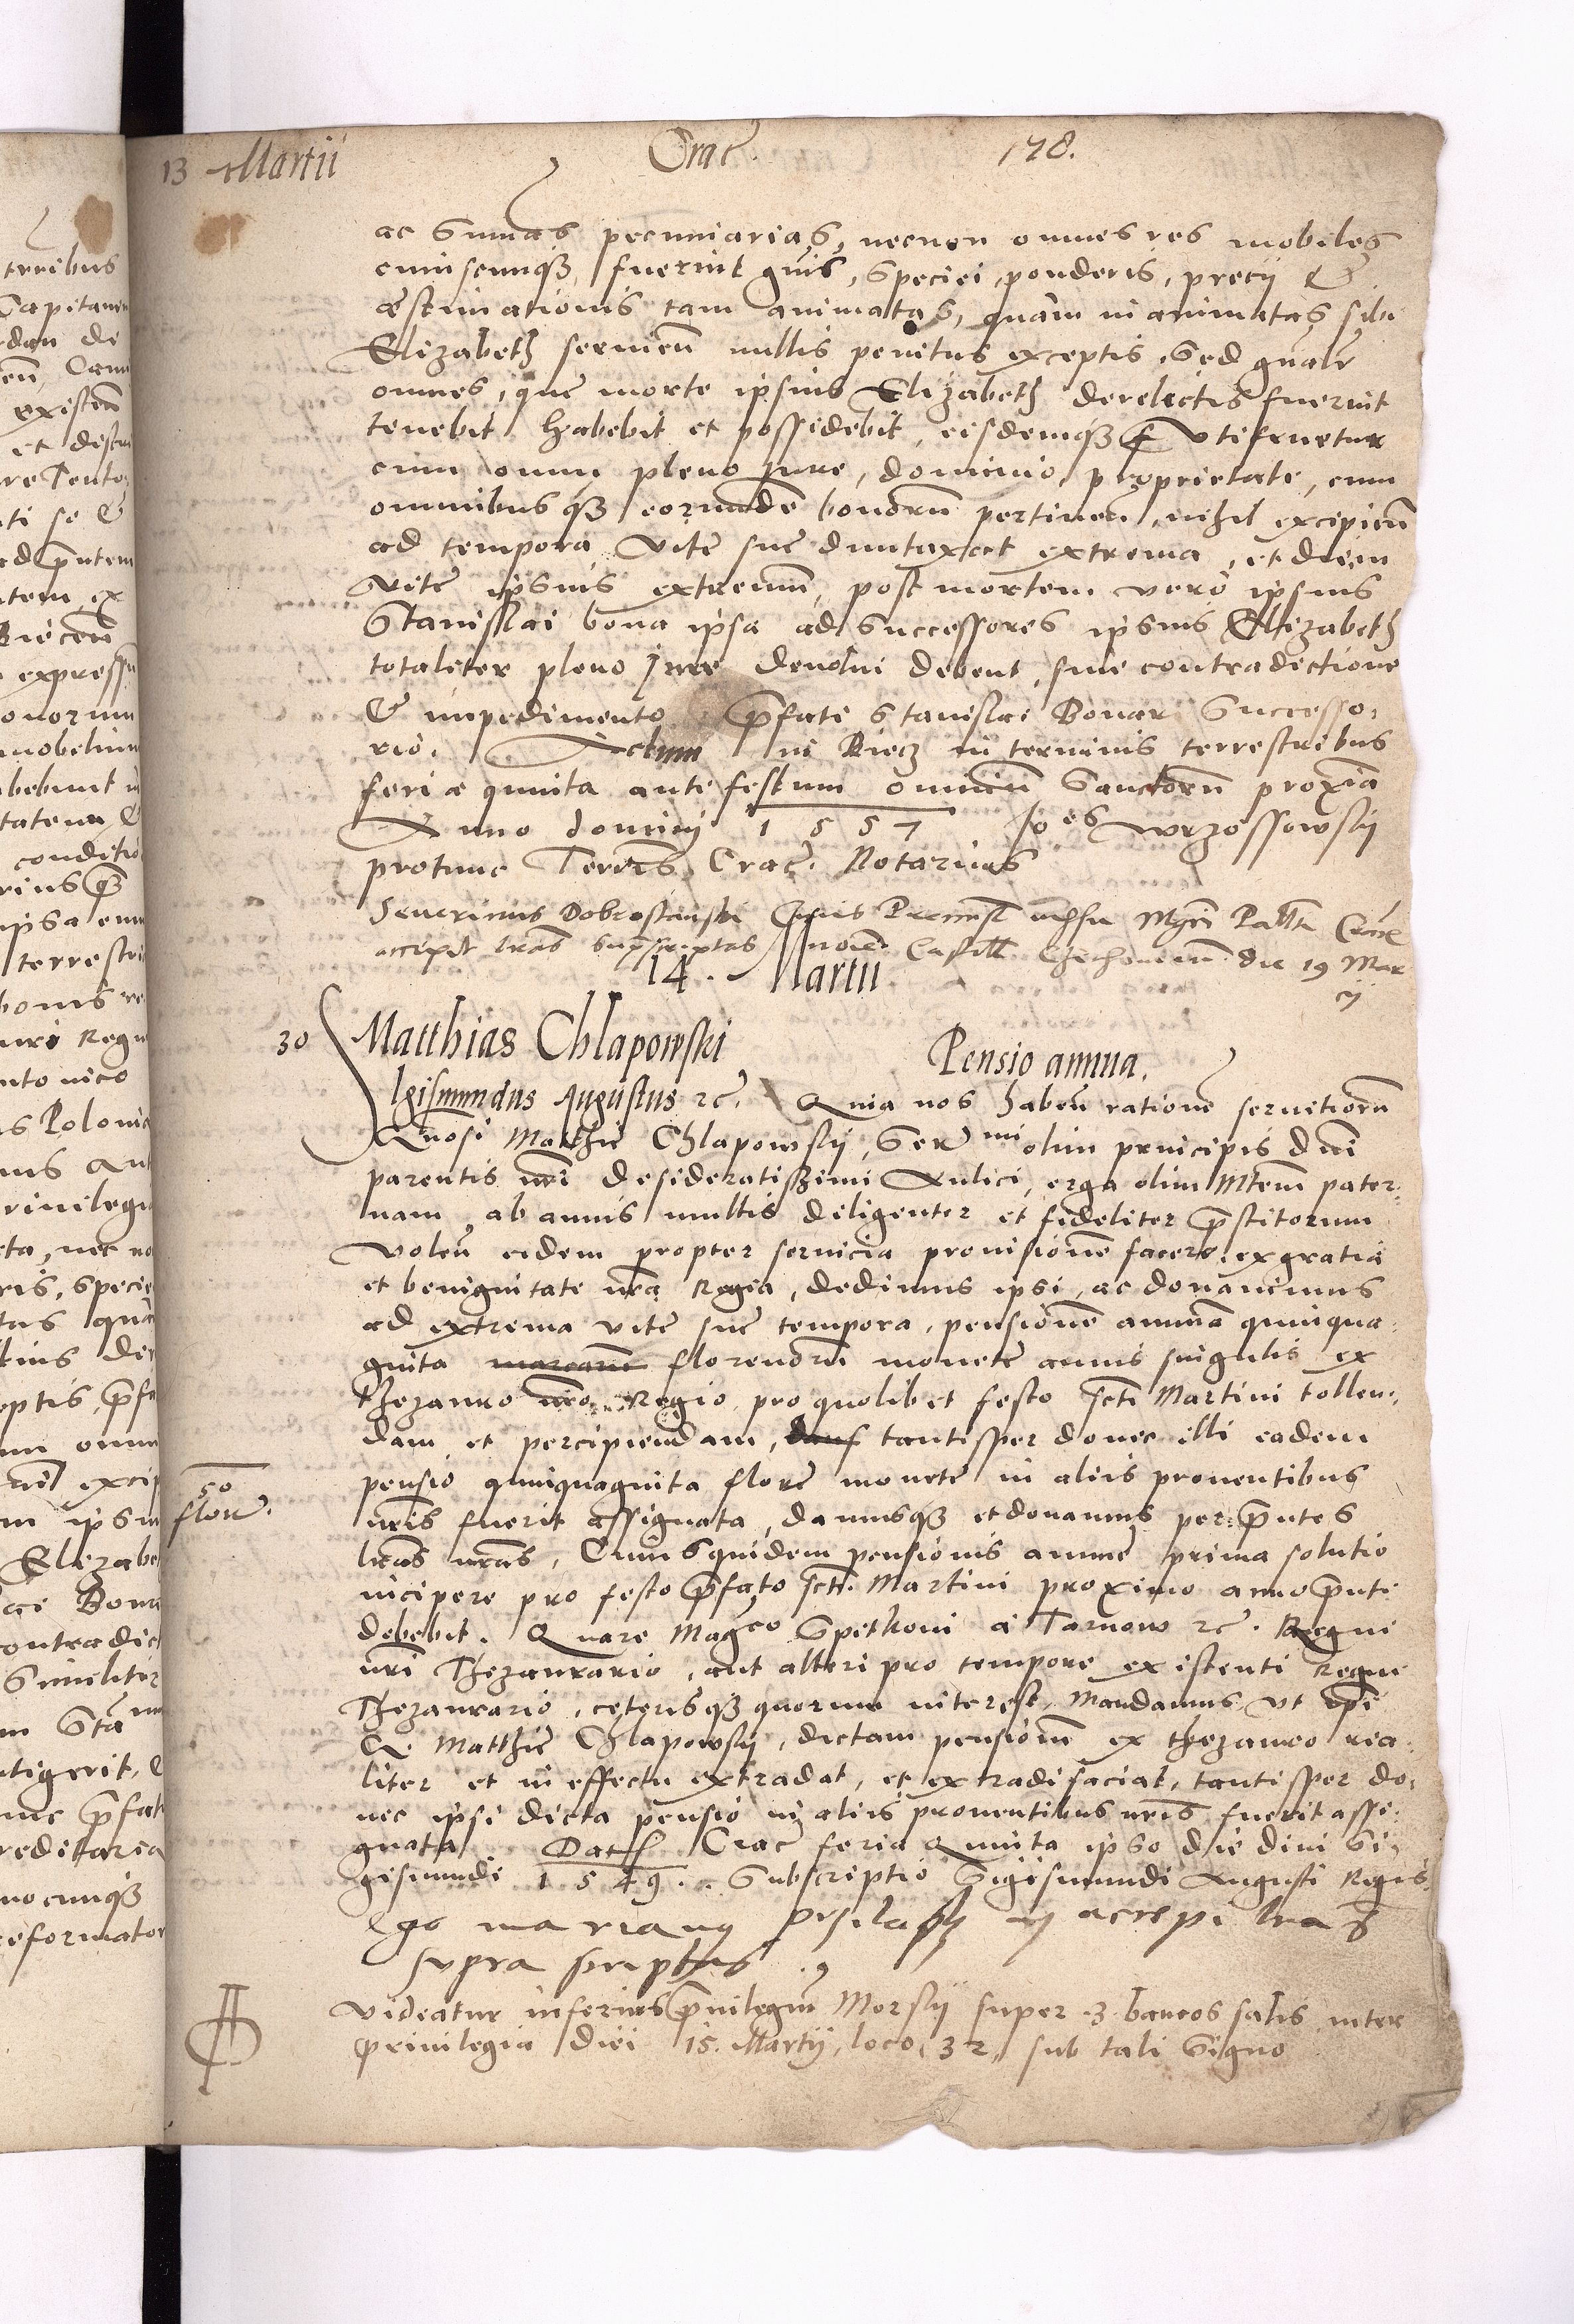 13 Martii Crac. 178.
ac Summas pecuniarias, necnon omnes res mobiles
cuiuscunqȝ fuerint gnis, speciei, ponderis, precij &
æstimationis tam animatas, quam inanimatas sibi
Elizabeth servieñ nullis penitus exceptis, sed gnaĺr
omnes, que morte ipsius Elizabeth derelictis fuerint
tenebit habebit et possidebit, eisdemqȝ utifruetur
cum omni pleno iure, dominio, proprietate, cum
omnibusqȝ eorundẽ bonorũ pertineñ, nihil excipieñ
ad tempora vite sue duntaxat extrema, et diem
vite ipsius extremũ, post mortem vero ipsius
Stanislai bona ipsa ad successores ipsius Elizabeth
totaliter pleno jure devolui debent, sine contradictione
& impedimento p̃fati Stanislai Bonar successo:
rio. Actum in Biecz in terminis terrestribus
feria quinta ante festum omniũ Sanctorũ proxĩa
Anno dominj 1557 Joes Wrzossowskij
protunc Terrīs Crac̃. Notarius
Severinus Dobrostanski Civis Premisl̃ iussu Mgcĩ Patt̃i Crac̃
accepit lras suprascriptas noiẽ Castell̃ Chechovieñ die 19 Mar
ij
14. Martii
30 Matthias Chlapowski Pensio annua.
Igismundus Augustus rc̃. Quia nos habeñ rationẽ servitiorũ
Gnosi Matthie Chlapowskij, Sermi olim principis dñi
parentis nri desideratissimi Aulici, erga olim Mtem pater:
nam, ab annis multis diligenter et fideliter p̃stitorum
voleñ eidem propter servicia provisionẽ facere, ex gratia
et benignitate nrã Regia, dedimus ipsi, ac donavimus
ad extrema vite sue tempora, pensionẽ annuã quinqua:
ginta marcarũ florenorũ monete annis singulis ex
thezauro nrõ Regio pro quolibet festo scti Martini tollen:
dam et percipiendam, damꝰ tantisper donec illi eadem
pensio quinquaginta floreñ monete in aliis proventibus
50
floreñ.
nris fuerit assignata, damusqȝ et donamus per p̃ntes
lras nras, Cuius quidem pensionis annue prima solutio
incipere pro festo p̃fato scti Martini proximo anno p̃nti
debebit. Quare Magco Spetkoni a Tarnow rc̃. Regni
nri Thezaurario, aut alteri pro tempore existenti Regni
Thezaurario, ceterisqȝ quorum interest, Mandamus, ut ipi
G. Matthie Chlapowskij, dictam pensionẽ ex thezauro rea:
liter et in effectu extradat, et extradi faciat, tantisper do:
nec ipsi dicta pensio in aliis proventibus nris fuerit assi:
gnata. Datˢ Crac̃ feria Quinta ipso die divi Si:
gismundi 1549. Subscriptio Sigismundi Augusti Regis.
Ego marianꝰ accepi lras
supra scriptas
Videatur inferius p̃vilegiũ Morskij super 3 bancos salis inter
privilegia diei 15. Martij, loco, 32, sub tali signo